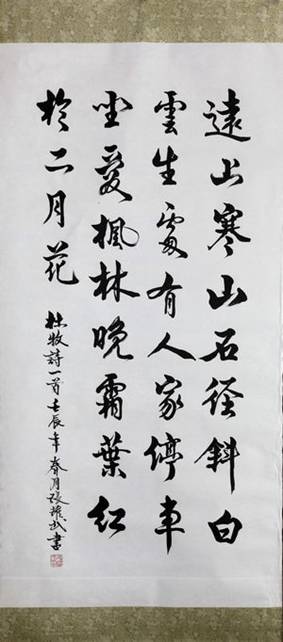 遠上寒山石径斜白
雲生處有人家停車
坐愛楓林晚霜葉紅
於二月花
杜牧詩一首壬辰年春月張武書